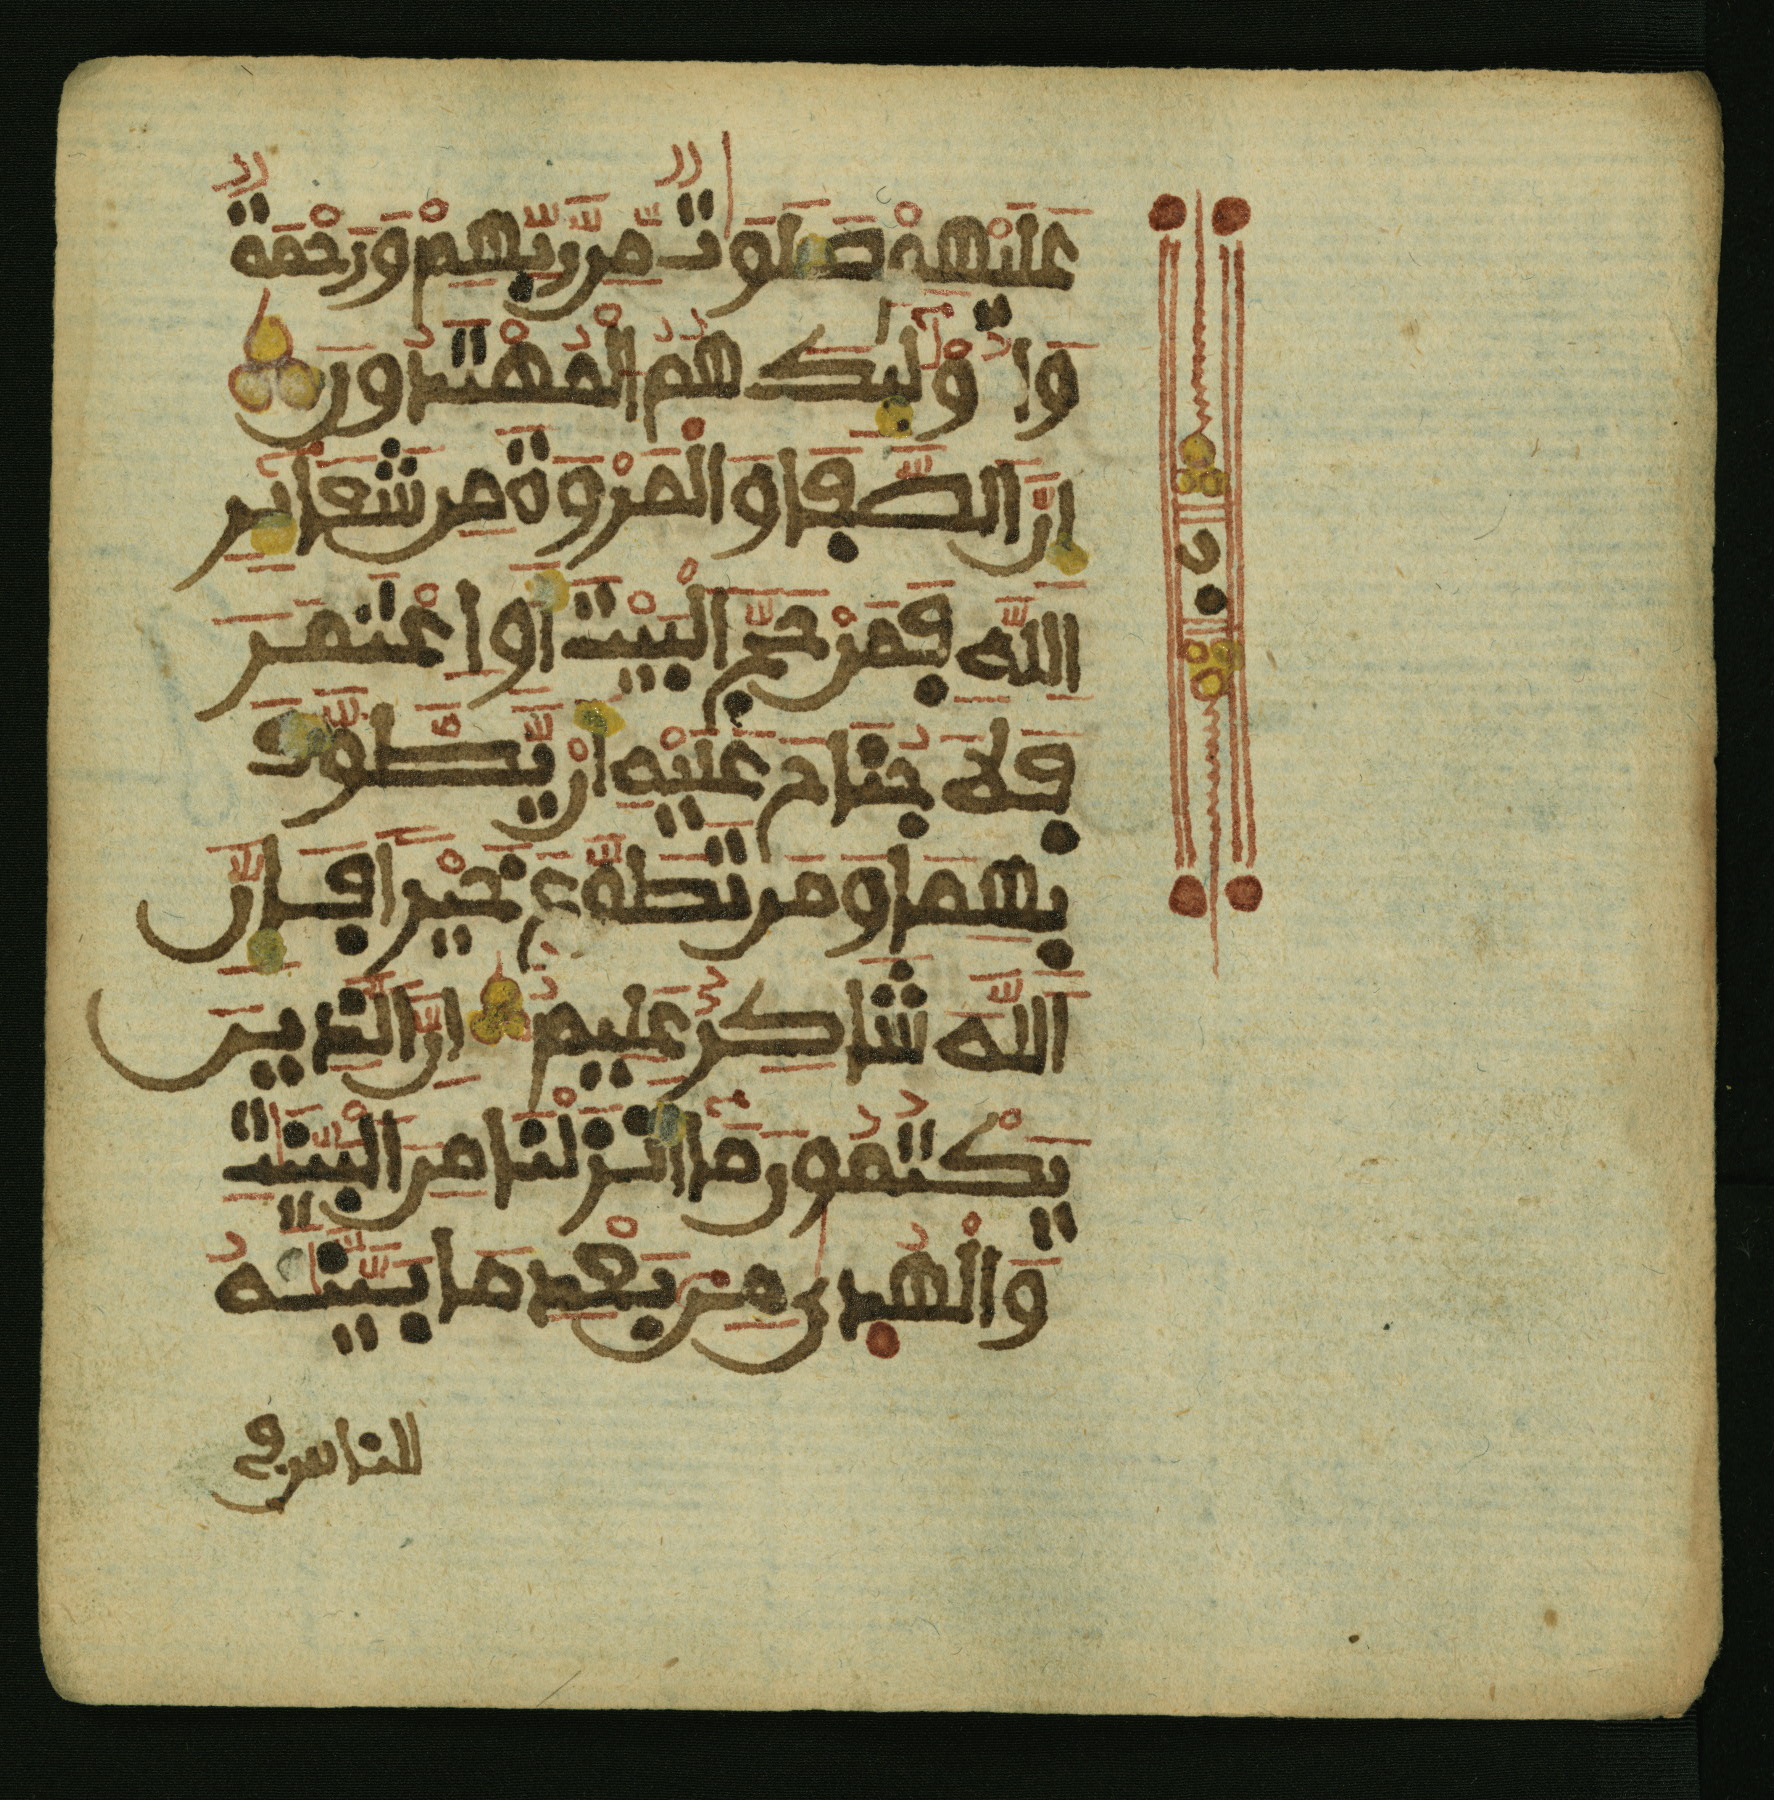 عَلَيْهِمْ صَلَوَٰتٌ مِّن رَّبِّهِمْ وَرَحْمَةٌ
وَأُوْلَٰٓئِكَ هُمُ الْمُهْتَدُونَ
إِنَّ الصَّفَا وَالْمَرْوَةَ مِن شَعَآئِرِ
اللَّهِ فَمَنْ حَجَّ الْبَيْتَ أَوِ اعْتَمَرَ
فَلَا جُنَاحَ عَلَيْهِ أَنْ يَّطَّوَّفَ
بِهِمَا وَمَن تَطَوَّعَ خَيْرًا فَإِنَّ
اللَّهَ شَاكِرٌ عَلِيمٌ إِنَّ الَّذِينَ
يَكْتُمُونَ مَآ أَنزَلْنَا مِنَ الْبَيِّنَٰتِ
وَالْهُدَىٰ مِنۢ بَعْدِ مَا بَيَّنَّٰهُ
للناس في